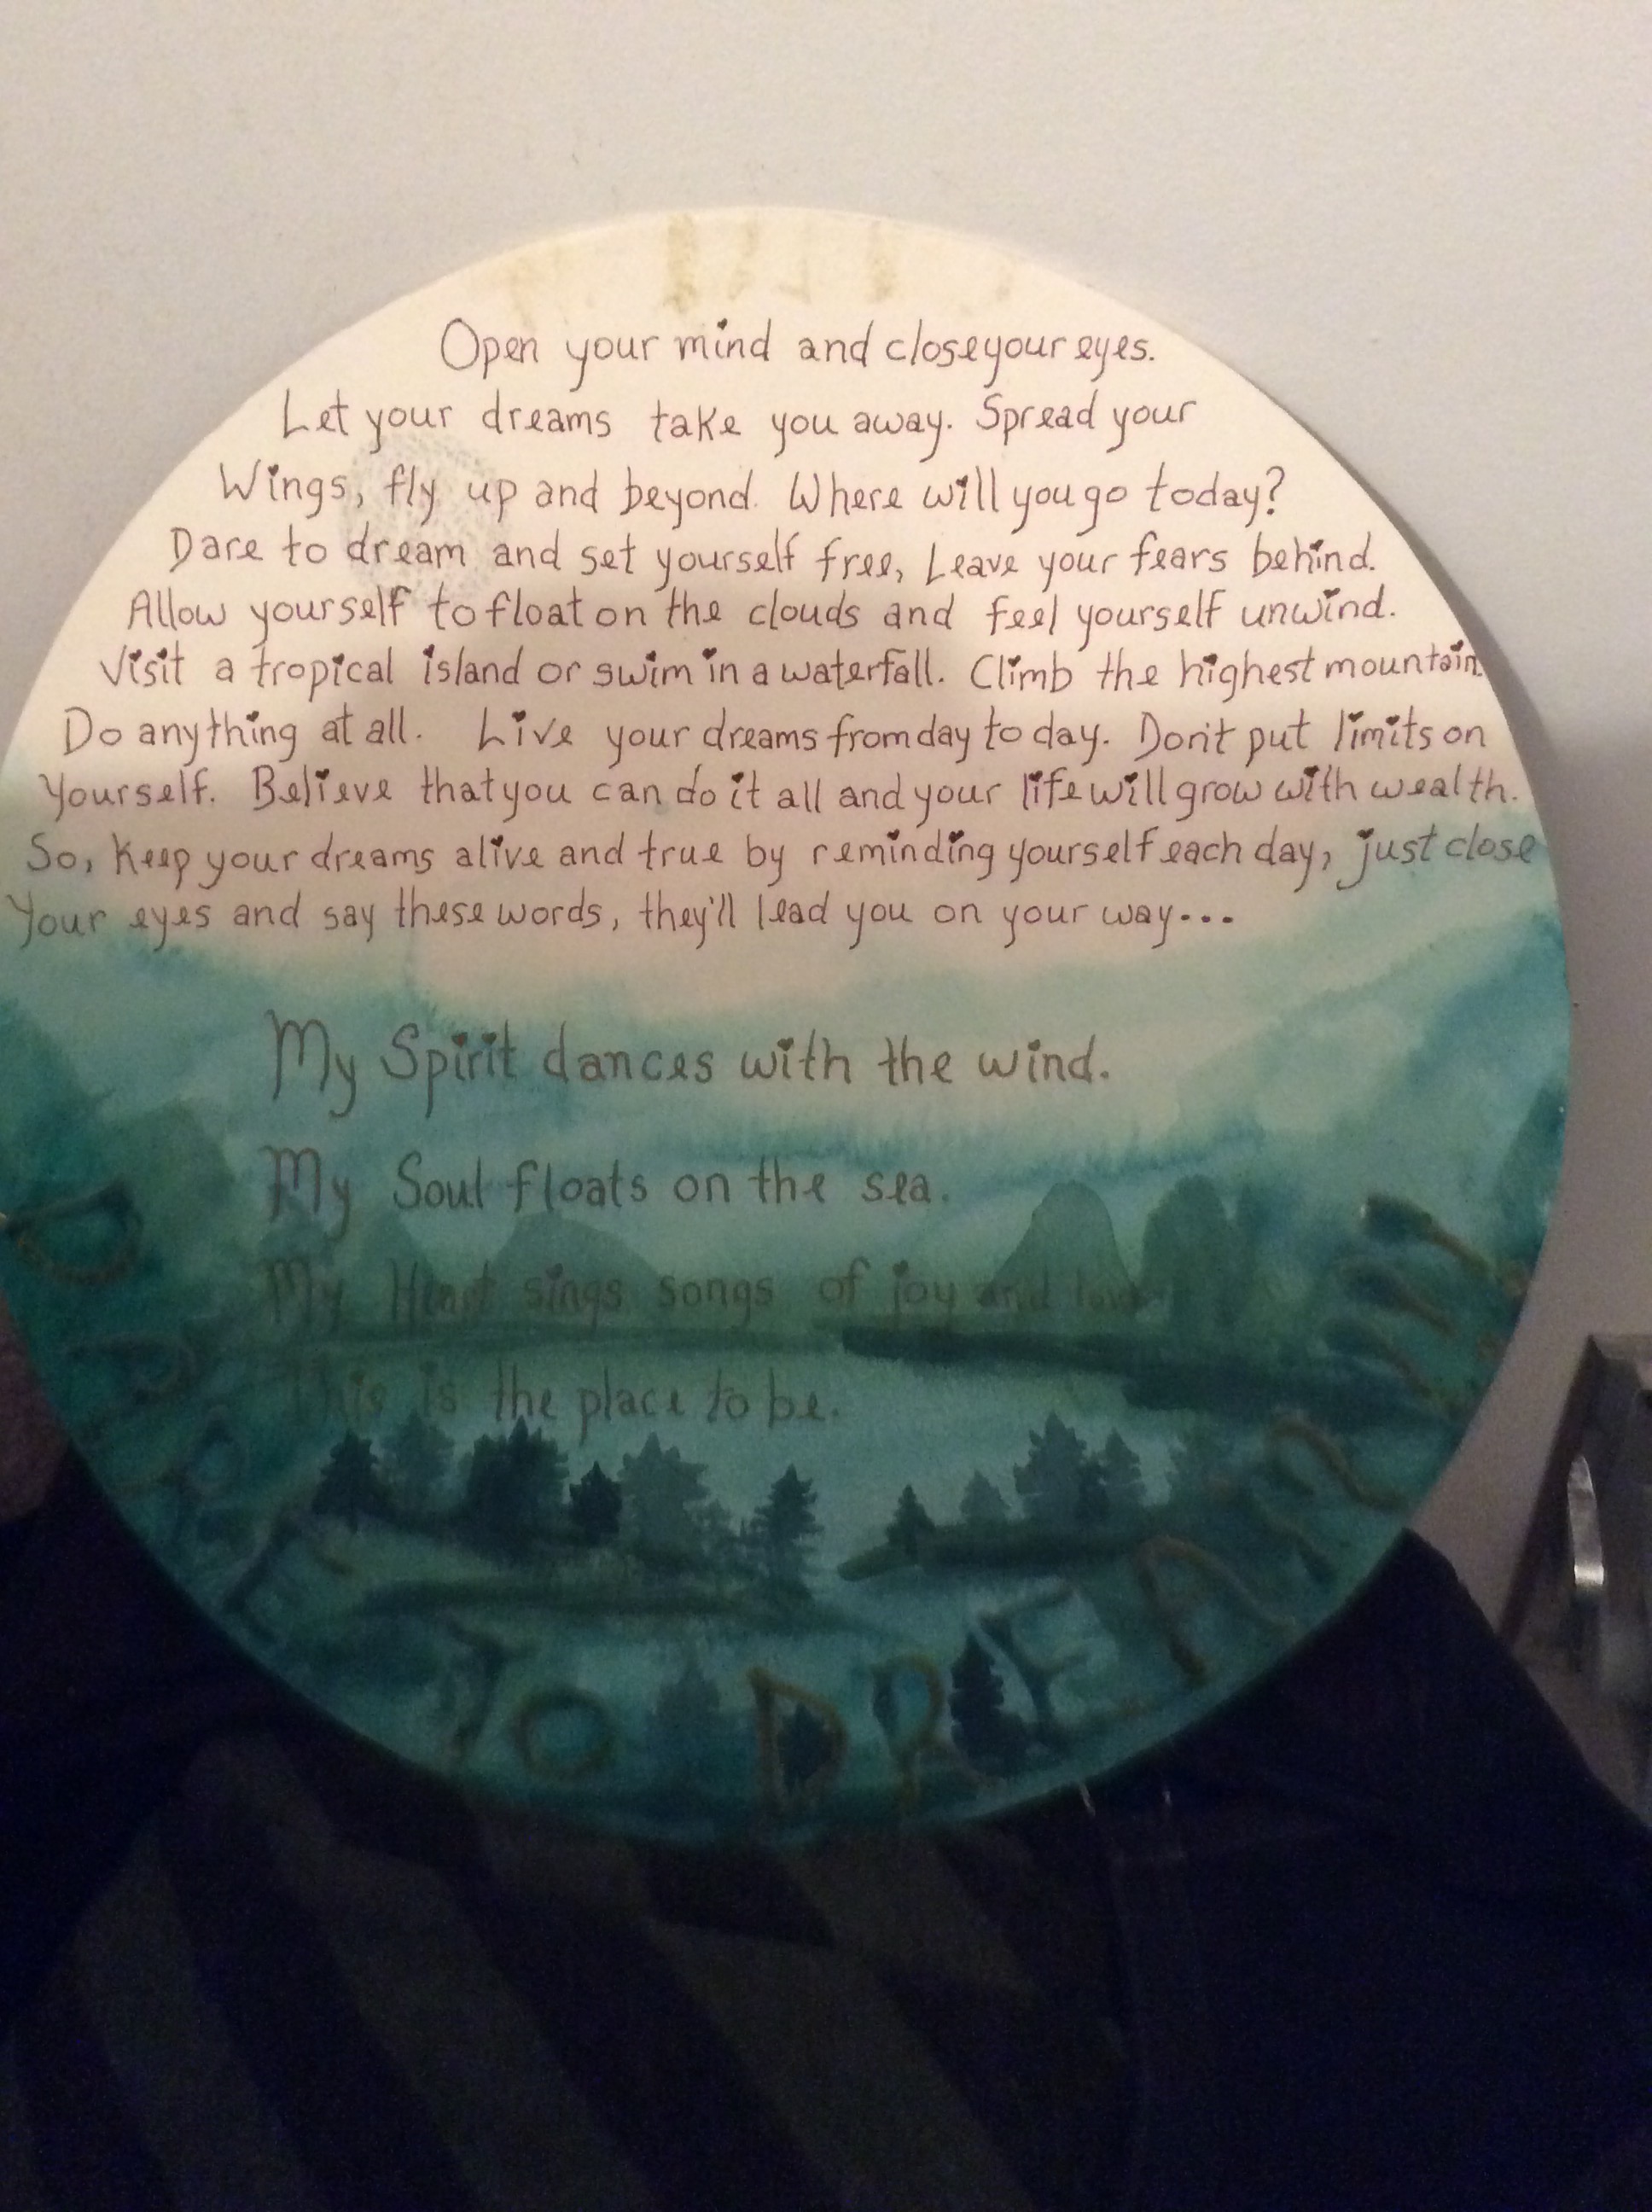 Open your mind and close your eyes.
Let your dreams take you away. Spread your
Wings, fly up and beyond. Where will you go today?
Dare to dream and set yourself free, Leave your fears behind.
Allow yourself to float on the clouds and feel yourself unwind.
Visit a tropical island or swim in a waterfall. Climb the highest mountain.
Do anything at all. Live your dreams from day to day. Don't put limits on
Yourself. Believe that you can do it all and your life will grow with wealth.
So, Keep your dreams alive and true by reminding yourself each day, just close
Your eyes and say these words, they'll lead you on your way...
My Spirit dances with the wind.
My Soul floats on the sea.
My Heart sings songs of joy and love.
This is the place to be.
DARE TO DREAM!!!